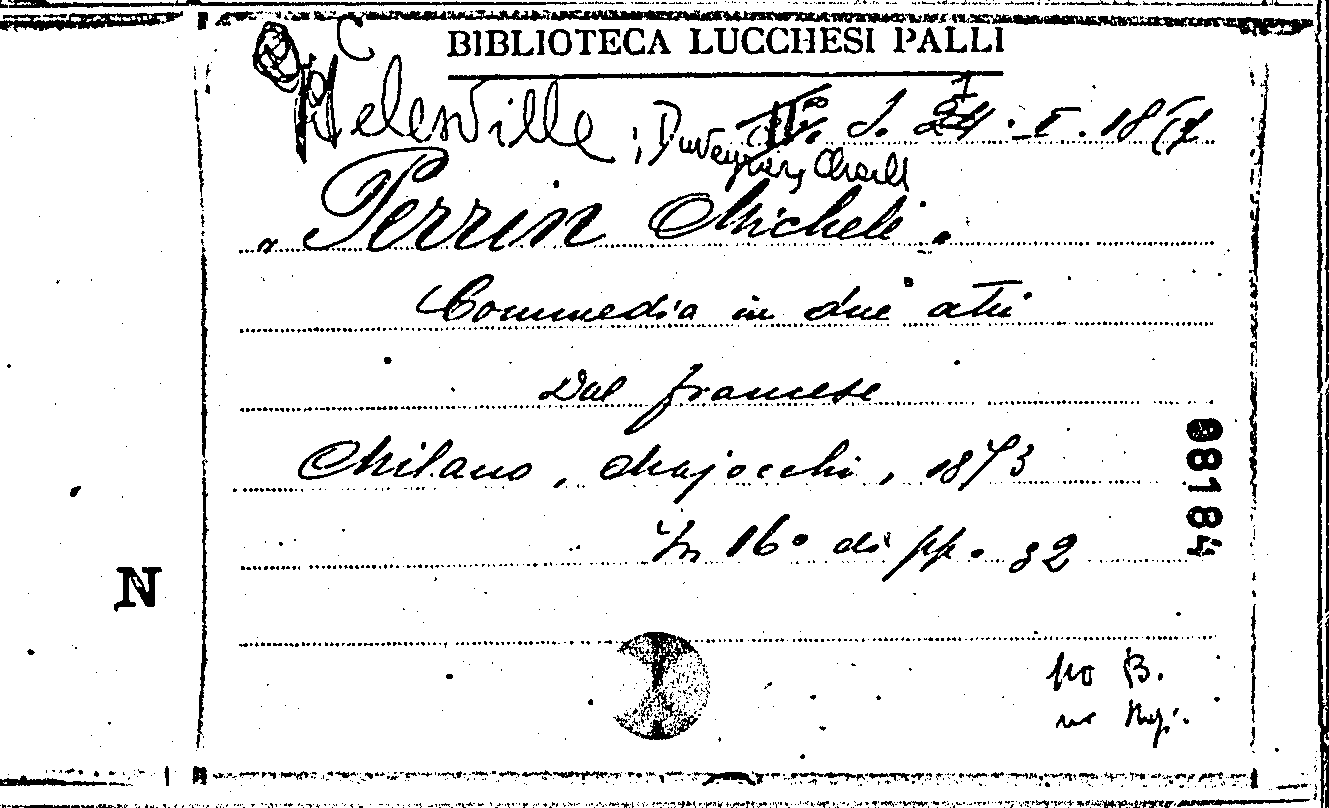 BIBLIOTECA LUCCHESI PALLI
Melesville ; Duveyrier, Charles
" Perrin Michele.
Commedia in due atti
Dal francese
Milano, Majocchi, 1873
In 16° di pp. 32
08184
N
no B.